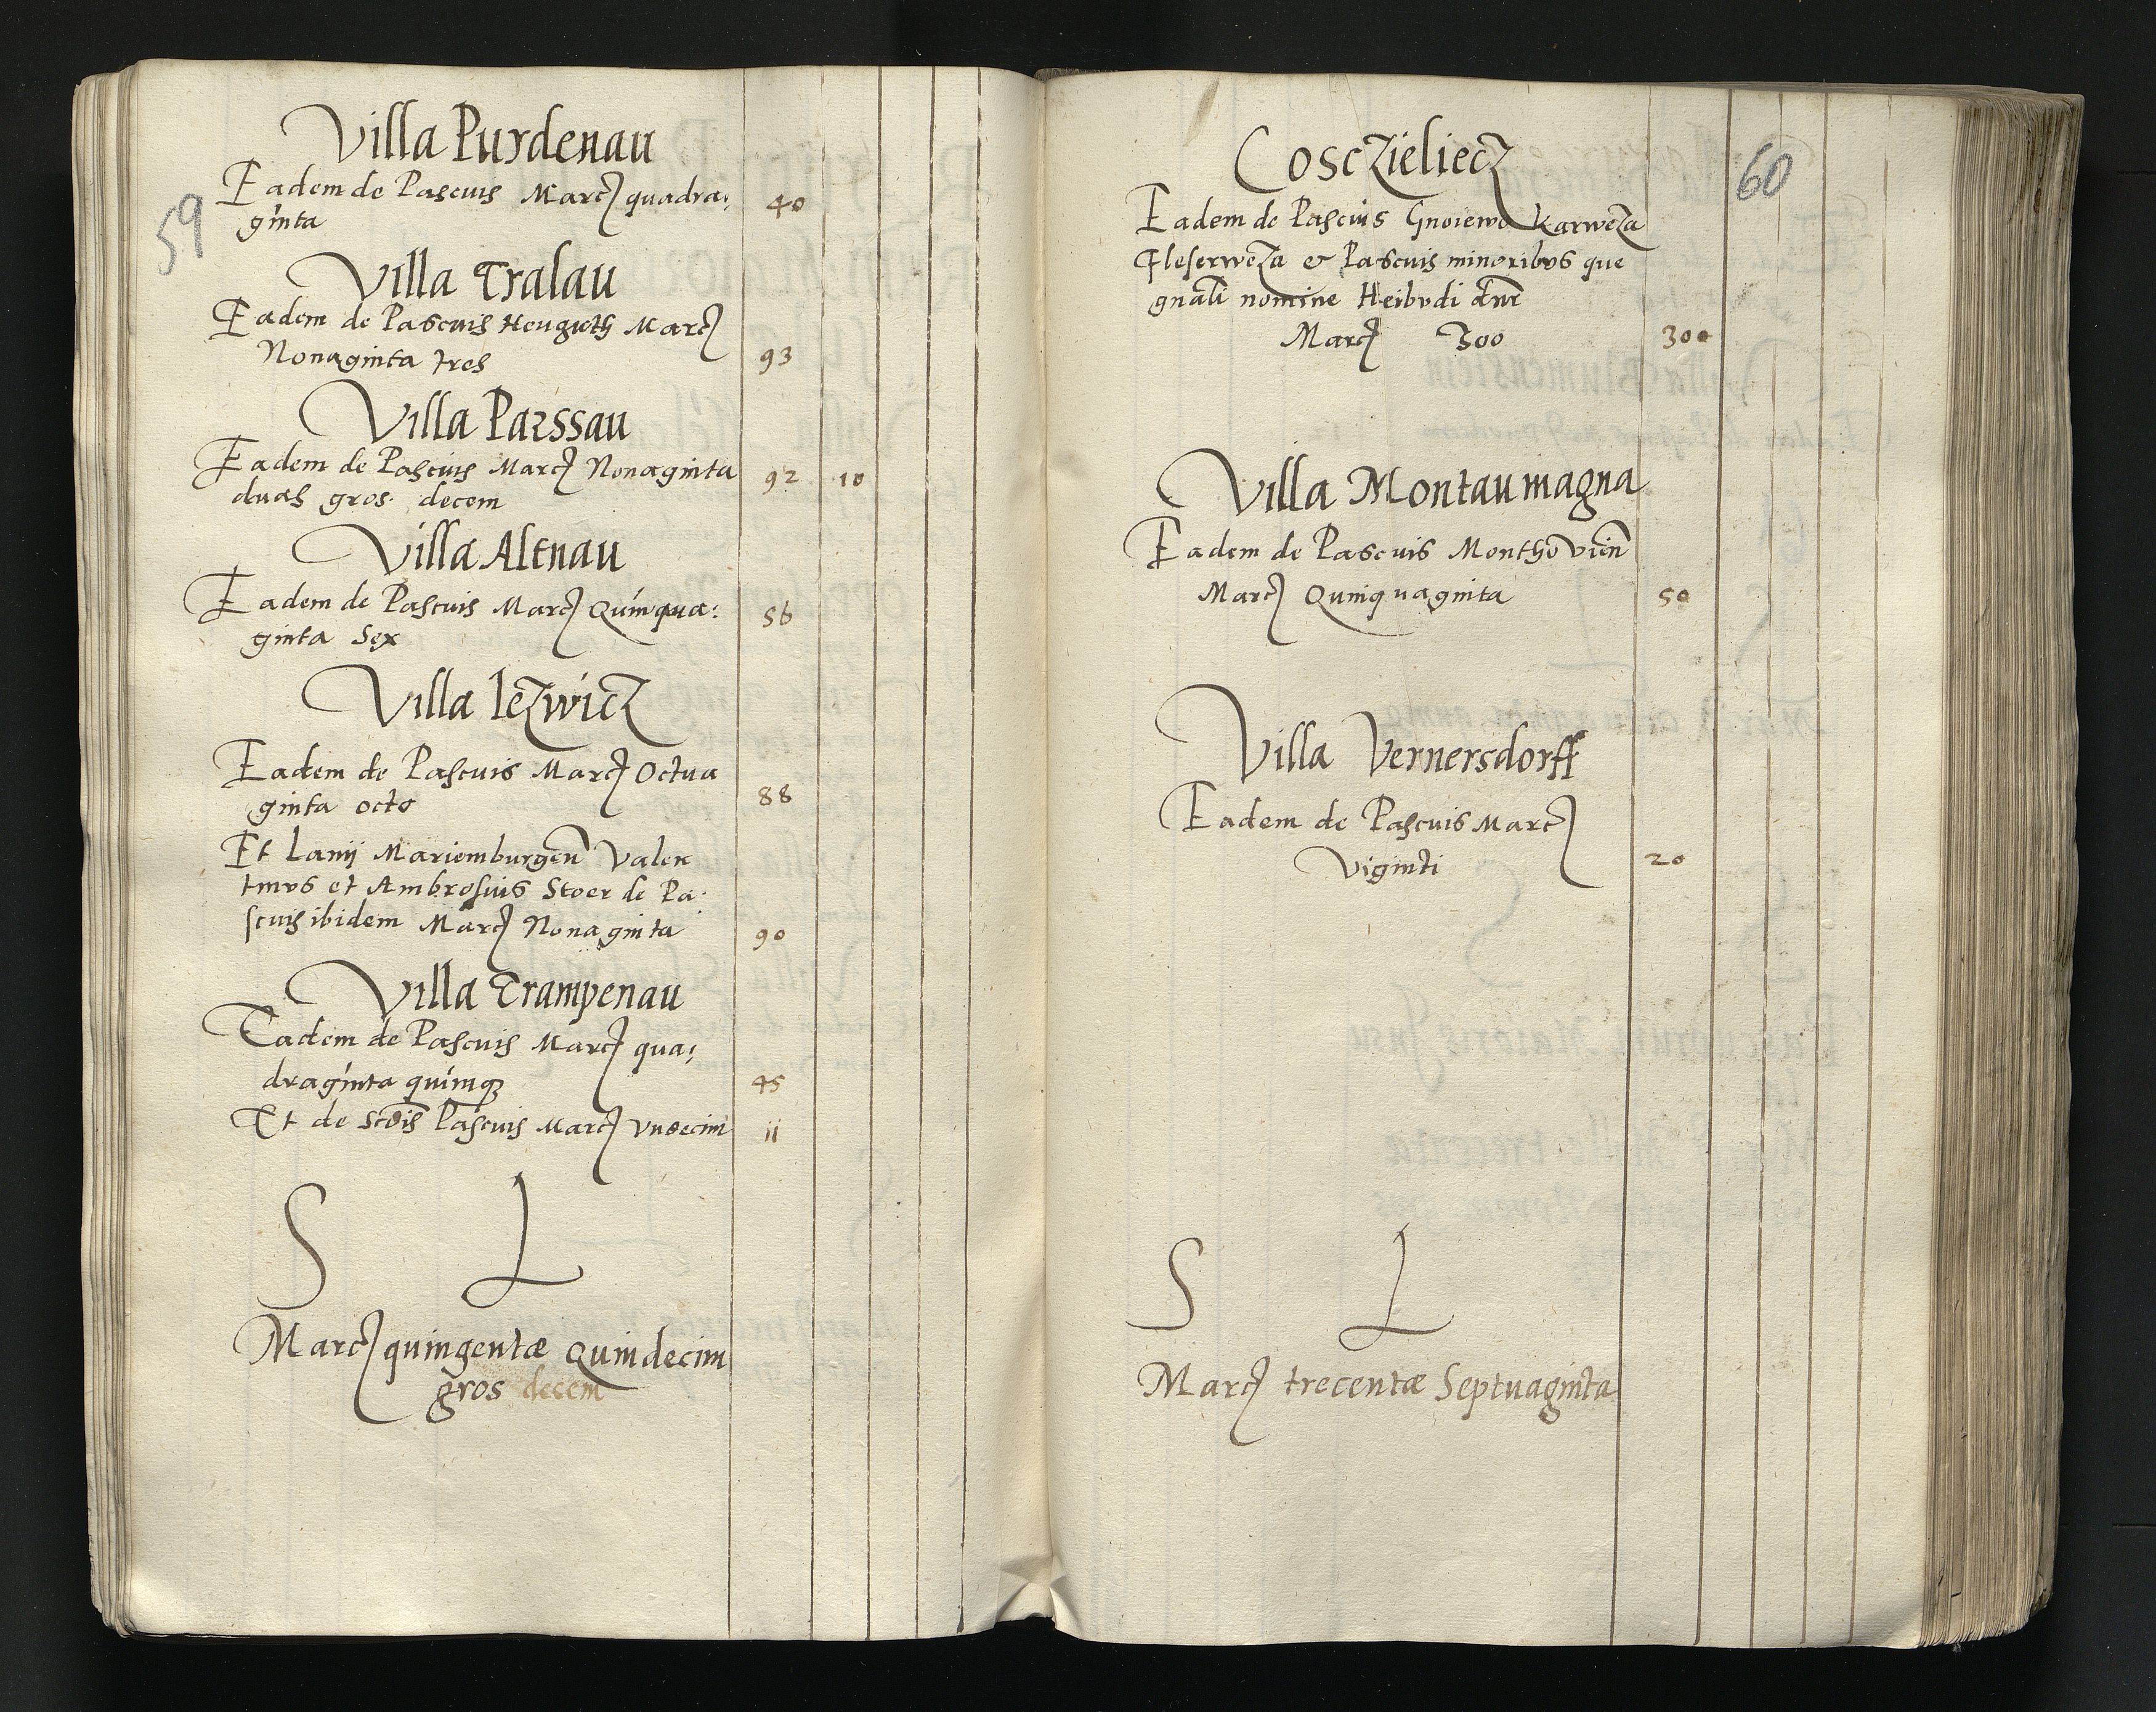 59
Villa Purdenau
Eadem de Pascuis Marcz quadra:
ginta 40
Villa Tralau
Eadem de Pascuis Heuguth Marcz
Nonaginta tres 93
Villa Parssau
Eadem de Pascuis Marcz Nonaginta 92 10
duas gros. decem
Villa Altnau
Eadem de Pascuis Marcz Quinqua: 56
ginta Sex
Villa lezwicz
Eadem de Pascuis Marcz Octua
ginta octo 88
Et Lanij Mariemburgen Valen
tinus et Ambrosius Stoer de Pa.
scuis ibidem Marcz Nonaginta 90
Villa Trampenau
Eadem de Pascuis Marcz qua:
draginta quinqz 45
Et de Scdis Pascuis Marcz Vndecim 11
S L
Marcz quingentæ Quindecim
gros decem
60
Cosczieliecz
Eadem de Pascuis Gnoiewo Karweza
Fleserweza et Pascuis minoribus que
gnali nomine Heibudi dnr
Marcz 300 300
Villa Montau magna
Eadem de Pascuis Monthovien
Marcz Quinquaginta 50
Villa Vernersdorff
Eadem de Pascuis Marcz
Viginti 20
S L
Marcz trecentæ Septuaginta